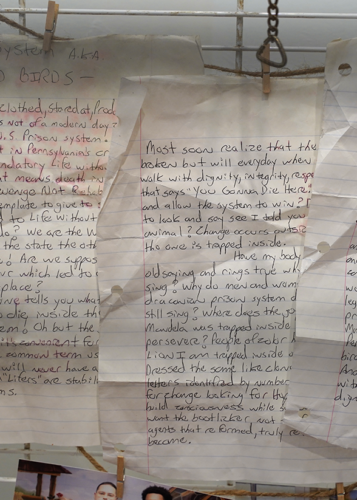 System A.K.A.
D BIRDS —
clothed, stored at, Prod
is not of a modern day
U.S. Prison system.
in Pennsylvania's cr
mandatory Life with
that means death in
Revenge Not
template to give to
d to Life Without
do? We are the W
the state the oth
o! Are we suppos
ur which led to
place?
ve tells you wha
o die, inside th
em! Oh but the
it's convenient for
common term us
will never have a
"Lifers" are stabili
ns.
Most soon realize that the
beaten but will everyday when
walk with dignity, integrity, resp
that says "You Gonna Die Here.
and allow the system to win? I
to look and say see I told you
animal? Change occurs outsid
the one is trapped inside.
Have my body
old saying and rings true wh
sing? Why do men and wom
draconian prison system d
still sing? Where does the
Mandela was trapped inside
persevere? People of color
Lion I am trapped inside a
Dressed the same like
letters identified by number
for change looking for the
build consciousness while s
want the bootlicker, not
agents that reformed, truly re
become.